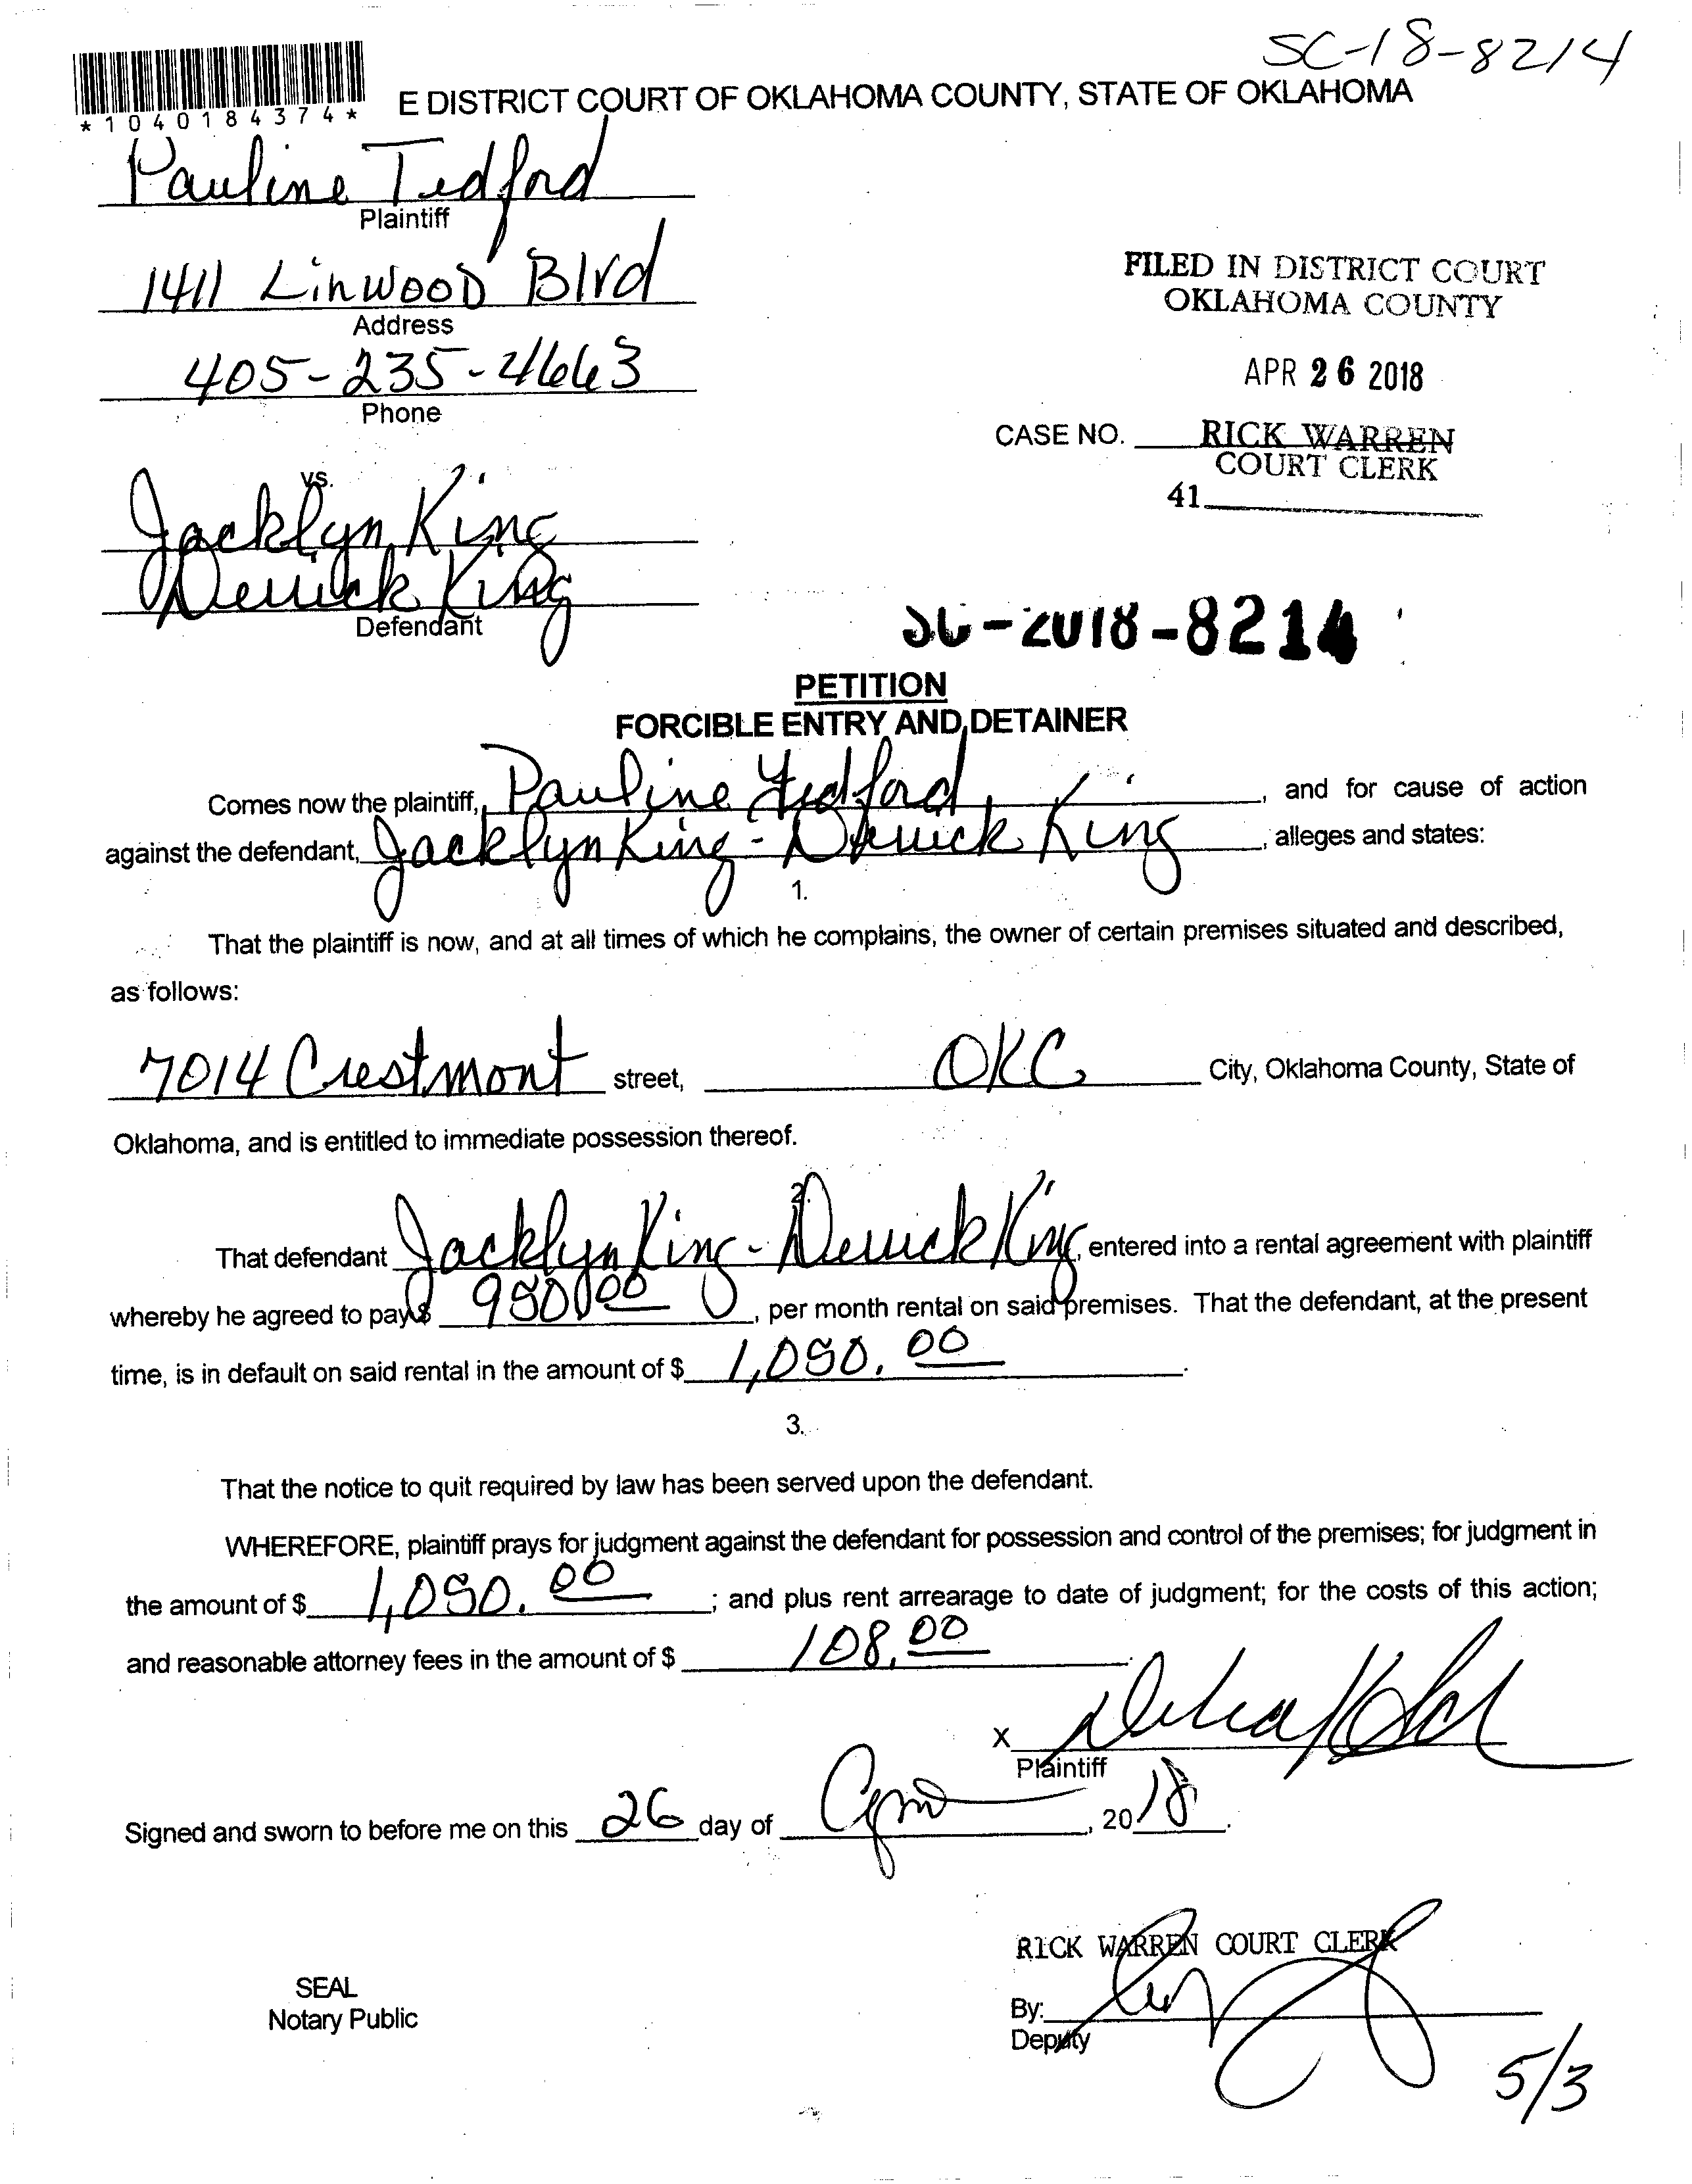 SC-18-8214
*1040184374*
E DISTRICT COURT OF OKLAHOMA COUNTY, STATE OF OKLAHOMA
Pauline Tedford
Plaintiff
1411 Linwood Blvd
Address
405-235-4663
Phone
FILED IN DISTRICT COURT
OKLAHOMA COUNTY
APR 26 2018
CASE NO. RICK WARREN
COURT CLERK
41
vs.
Jacklyn King
Derrick King
Defendant
SC-2018-8214
PETITION
FORCIBLE ENTRY AND DETAINER
Comes now the plaintiff, Pauline Tedford, and for cause of action
against the defendant, Jacklyn King - Derrick King, alleges and states:
1.
That the plaintiff is now, and at all times of which he complains, the owner of certain premises situated and described,
as follows:
7014 Crestmont street, OKC City, Oklahoma County, State of
Oklahoma, and is entitled to immediate possession thereof.
2.
That defendant Jacklyn King - Derrick King, entered into a rental agreement with plaintiff
whereby he agreed to pay $ 950.00, per month rental on said premises. That the defendant, at the present
time, is in default on said rental in the amount of $ 1,050.00.
3.
That the notice to quit required by law has been served upon the defendant.
WHEREFORE, plaintiff prays for judgment against the defendant for possession and control of the premises; for judgment in
the amount of $ 1,050.00; and plus rent arrearage to date of judgment; for the costs of this action;
and reasonable attorney fees in the amount of $ 108.00.
X
Plaintiff
Signed and sworn to before me on this 26 day of , 2018.
RICK WARREN COURT CLERK
SEAL
Notary Public
By:
Deputy
5/3